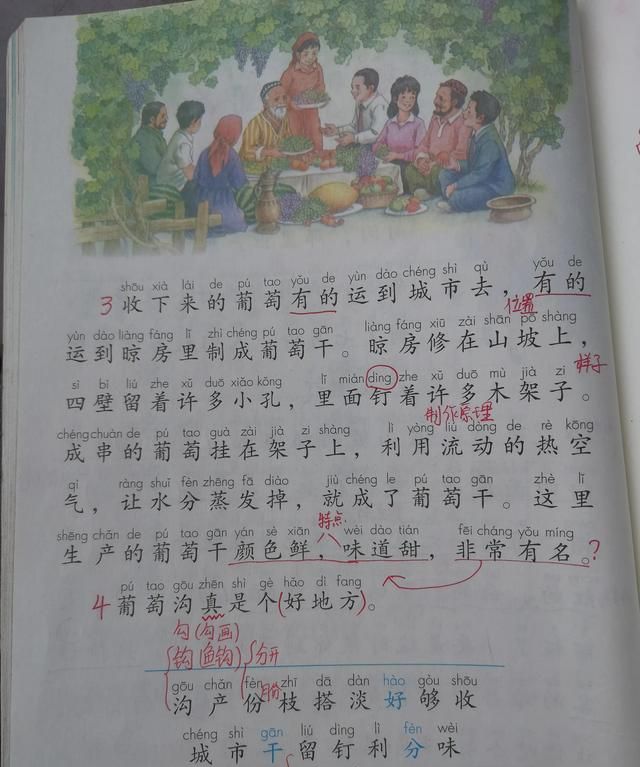 shōu xià lái de pú tao yǒu de yùn dào chéng shì qù yǒu de
3 收下来的葡萄有的运到城市去，有的
位置
yùn dào liàng fáng lǐ zhì chéng pú tao gān liàng fáng xiū zài shān pō shàng
运到晾房里制成葡萄干。晾房修在山坡上，
样子
sì bì liú zhe xǔ duō xiǎo kǒng lǐ miàn dìng zhe xǔ duō mù jià zi
四壁留着许多小孔，里面钉着许多木架子。
制作原理
chéng chuàn de pú tao guà zài jià zi shàng lì yòng liú dòng de rè kōng
成串的葡萄挂在架子上，利用流动的热空
qì ràng shuǐ fèn zhēng fā diào jiù chéng le pú tao gān zhè lǐ
气，让水分蒸发掉，就成了葡萄干。这里
特点
shēng chǎn de pú tao gān yán sè xiān wèi dào tián fēi cháng yǒu míng
生产的葡萄干颜色鲜，味道甜，非常有名。?
pú tao gōu zhēn shì gè hǎo dì fang
4 葡萄沟真是个(好地方)。
勾(勾画)
钩 鱼钩 分开
月份
gōu chǎn fèn zhī dā dàn hào gòu shōu
沟产份枝搭淡好够收
chéng shì gān liú dìng lì fèn wèi
城市干留钉利分味